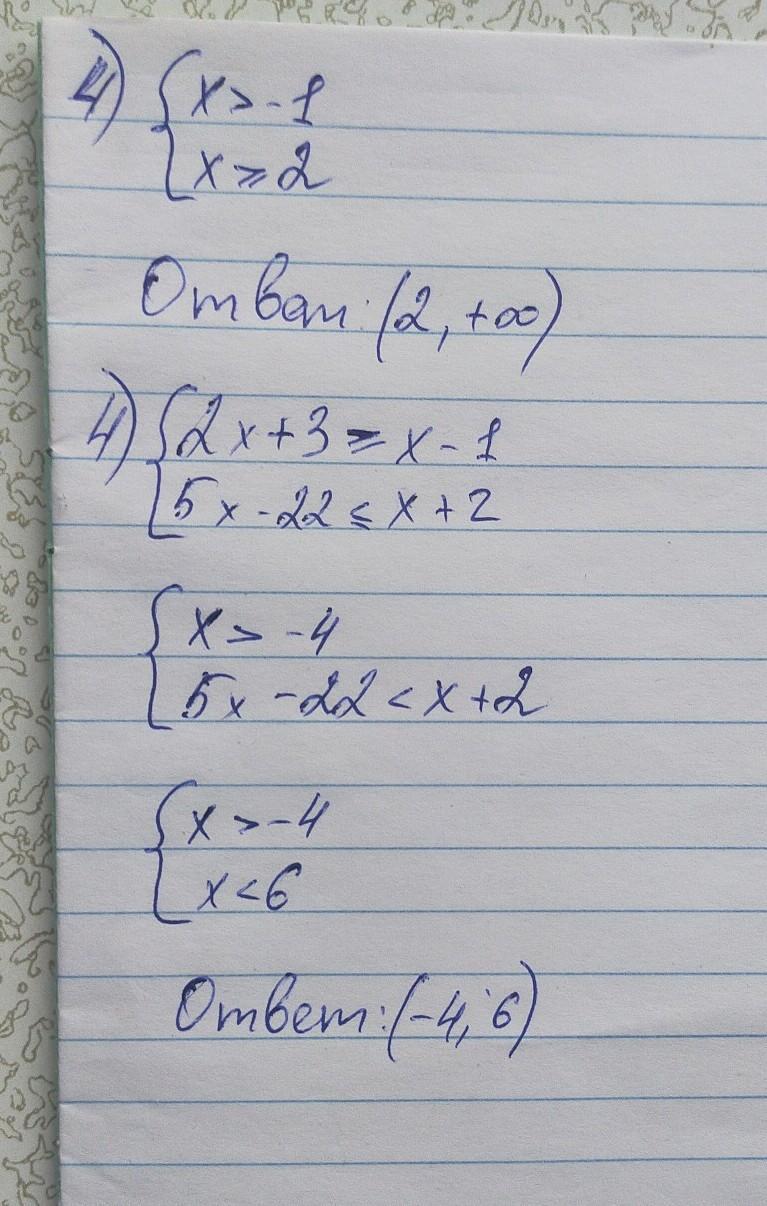 4) { x > -1
x ⩾ 2
Ответ: (2, +∞)
4) { 2x + 3 ⩾ x - 1
5x - 22 ⩽ x + 2
{ x > -4
5x - 22 < x + 2
{ x > -4
x < 6
Ответ: (-4; 6)